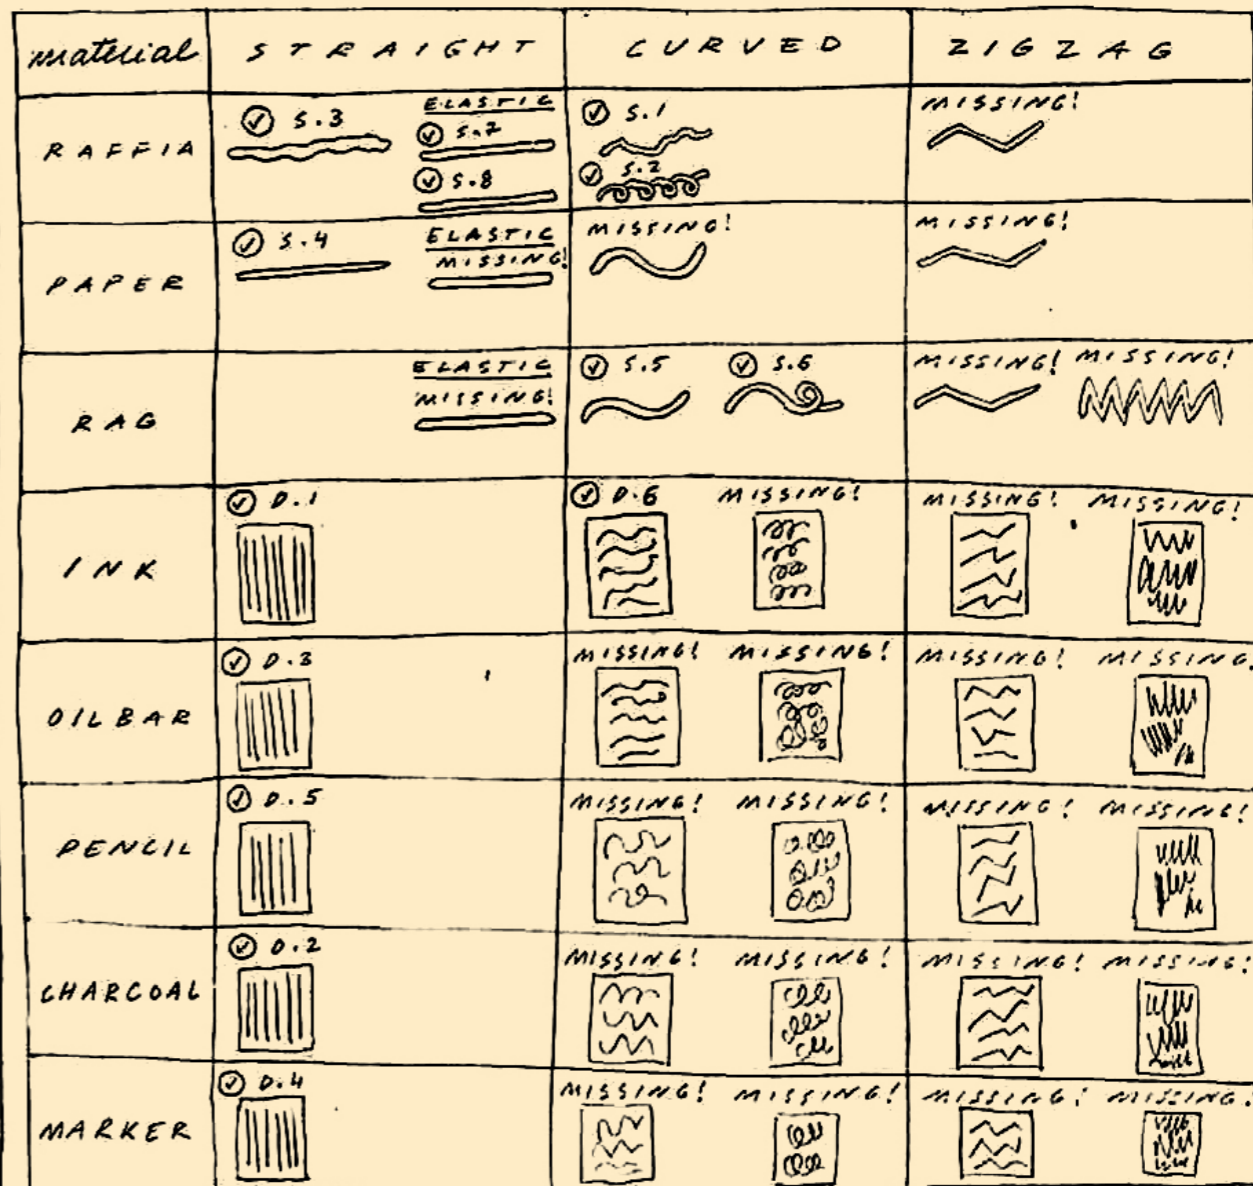 material STRAIGHT CURVED ZIGZAG
RAFFIA
S.3
ELASTIC
S.7
S.8
S.1
S.2
MISSING!
PAPER
S.4
ELASTIC
MISSING!
MISSING!
MISSING!
RAG
ELASTIC
MISSING!
S.5 S.6
MISSING! MISSING!
INK
D.1
D.6 MISSING!
MISSING! MISSING!
OILBAR
D.3
MISSING! MISSING!
MISSING! MISSING.
PENCIL
D.5
MISSING! MISSING!
MISSING! MISSING!
CHARCOAL
D.2
MISSING! MISSING!
MISSING! MISSING!
MARKER
D.4
MISSING! MISSING!
MISSING! MISSING!